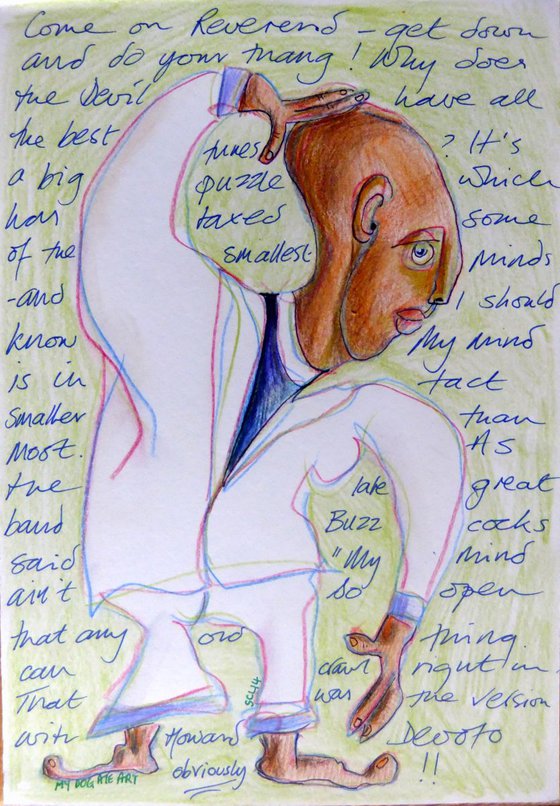 Come on Reverend - get down
and do your thang! Why does
the Devil have all
the best tunes ? It's
a big puzzle which
has taxed some
of the smallest minds
-and I should
know My mind
is in tact
smaller than
most. As
the late great
band Buzz cocks
said "My mind
ain't so open
that any old thing
can crawl right in.
That was the version
with Howard Devoto
obviously !!
SC414
MY DOG ATE ART